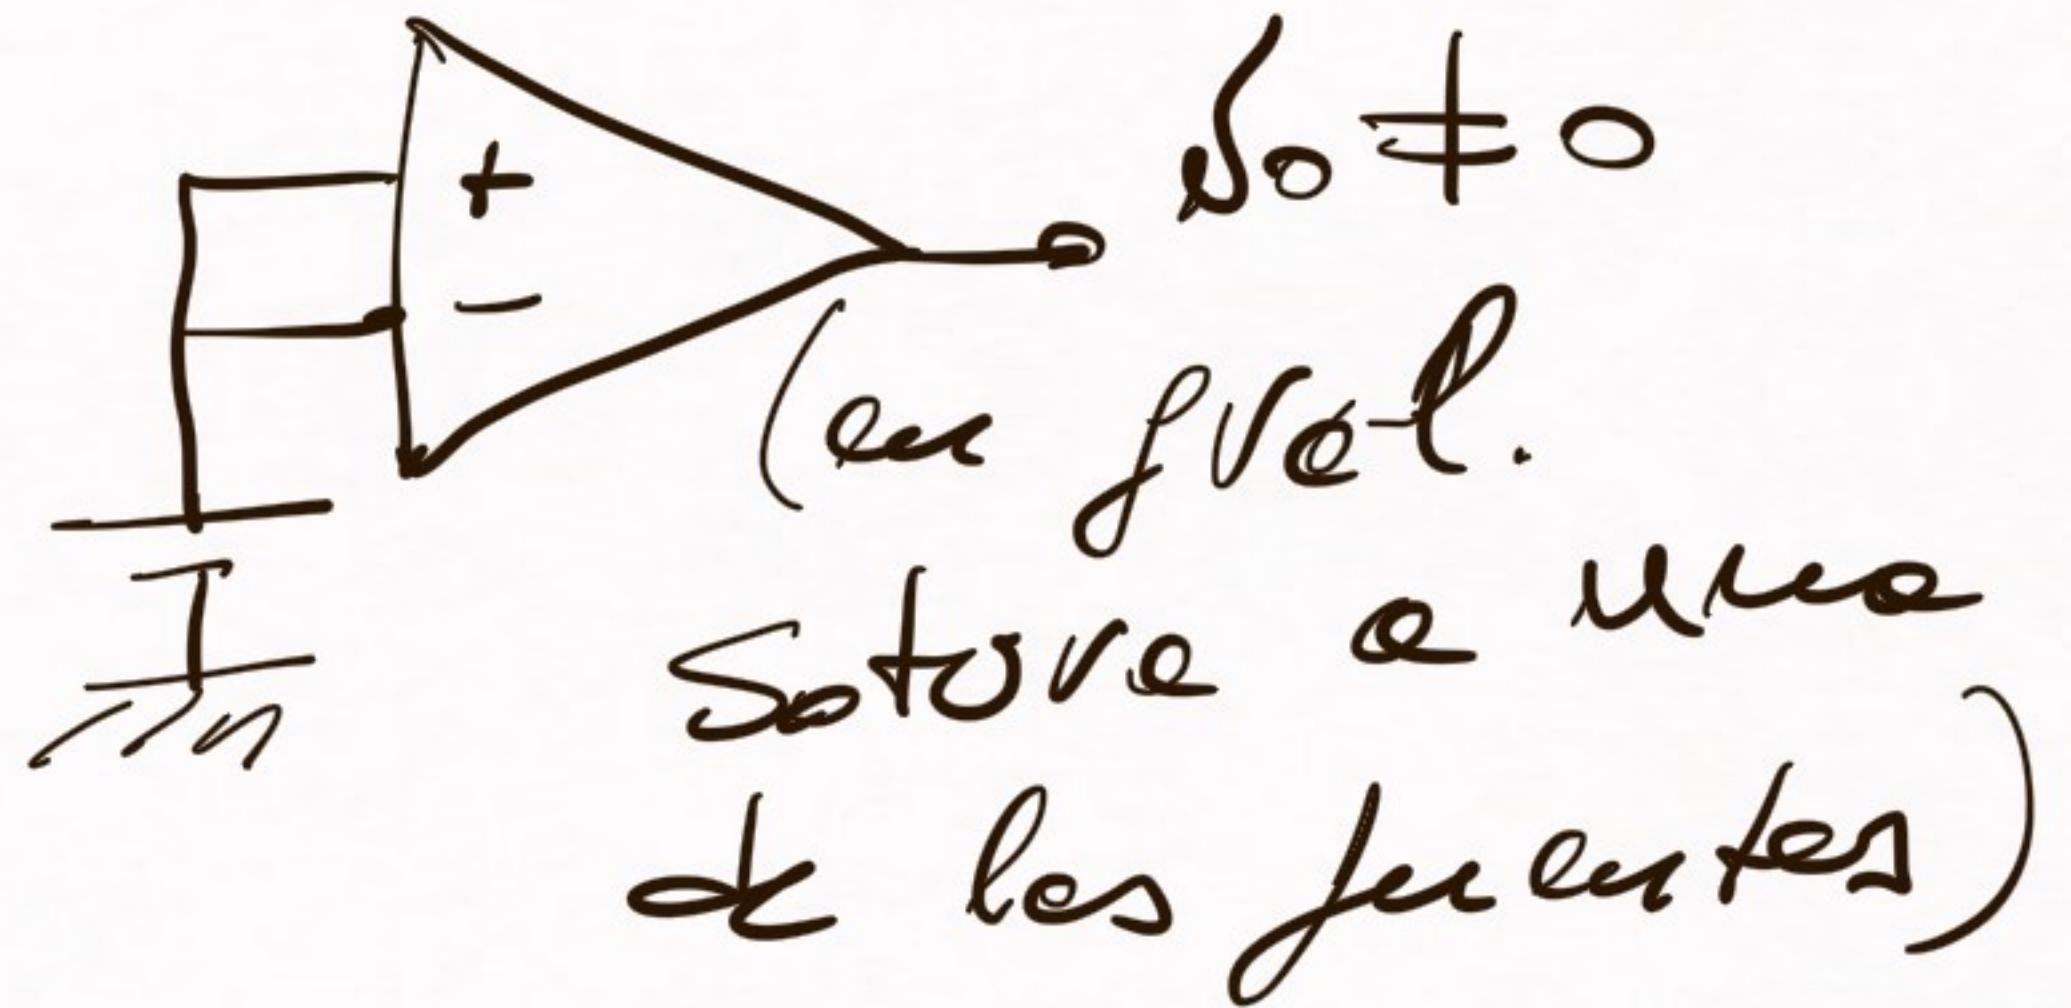 +
−
vo ≠ 0
(en gral.
satura a una
de las fuentes)